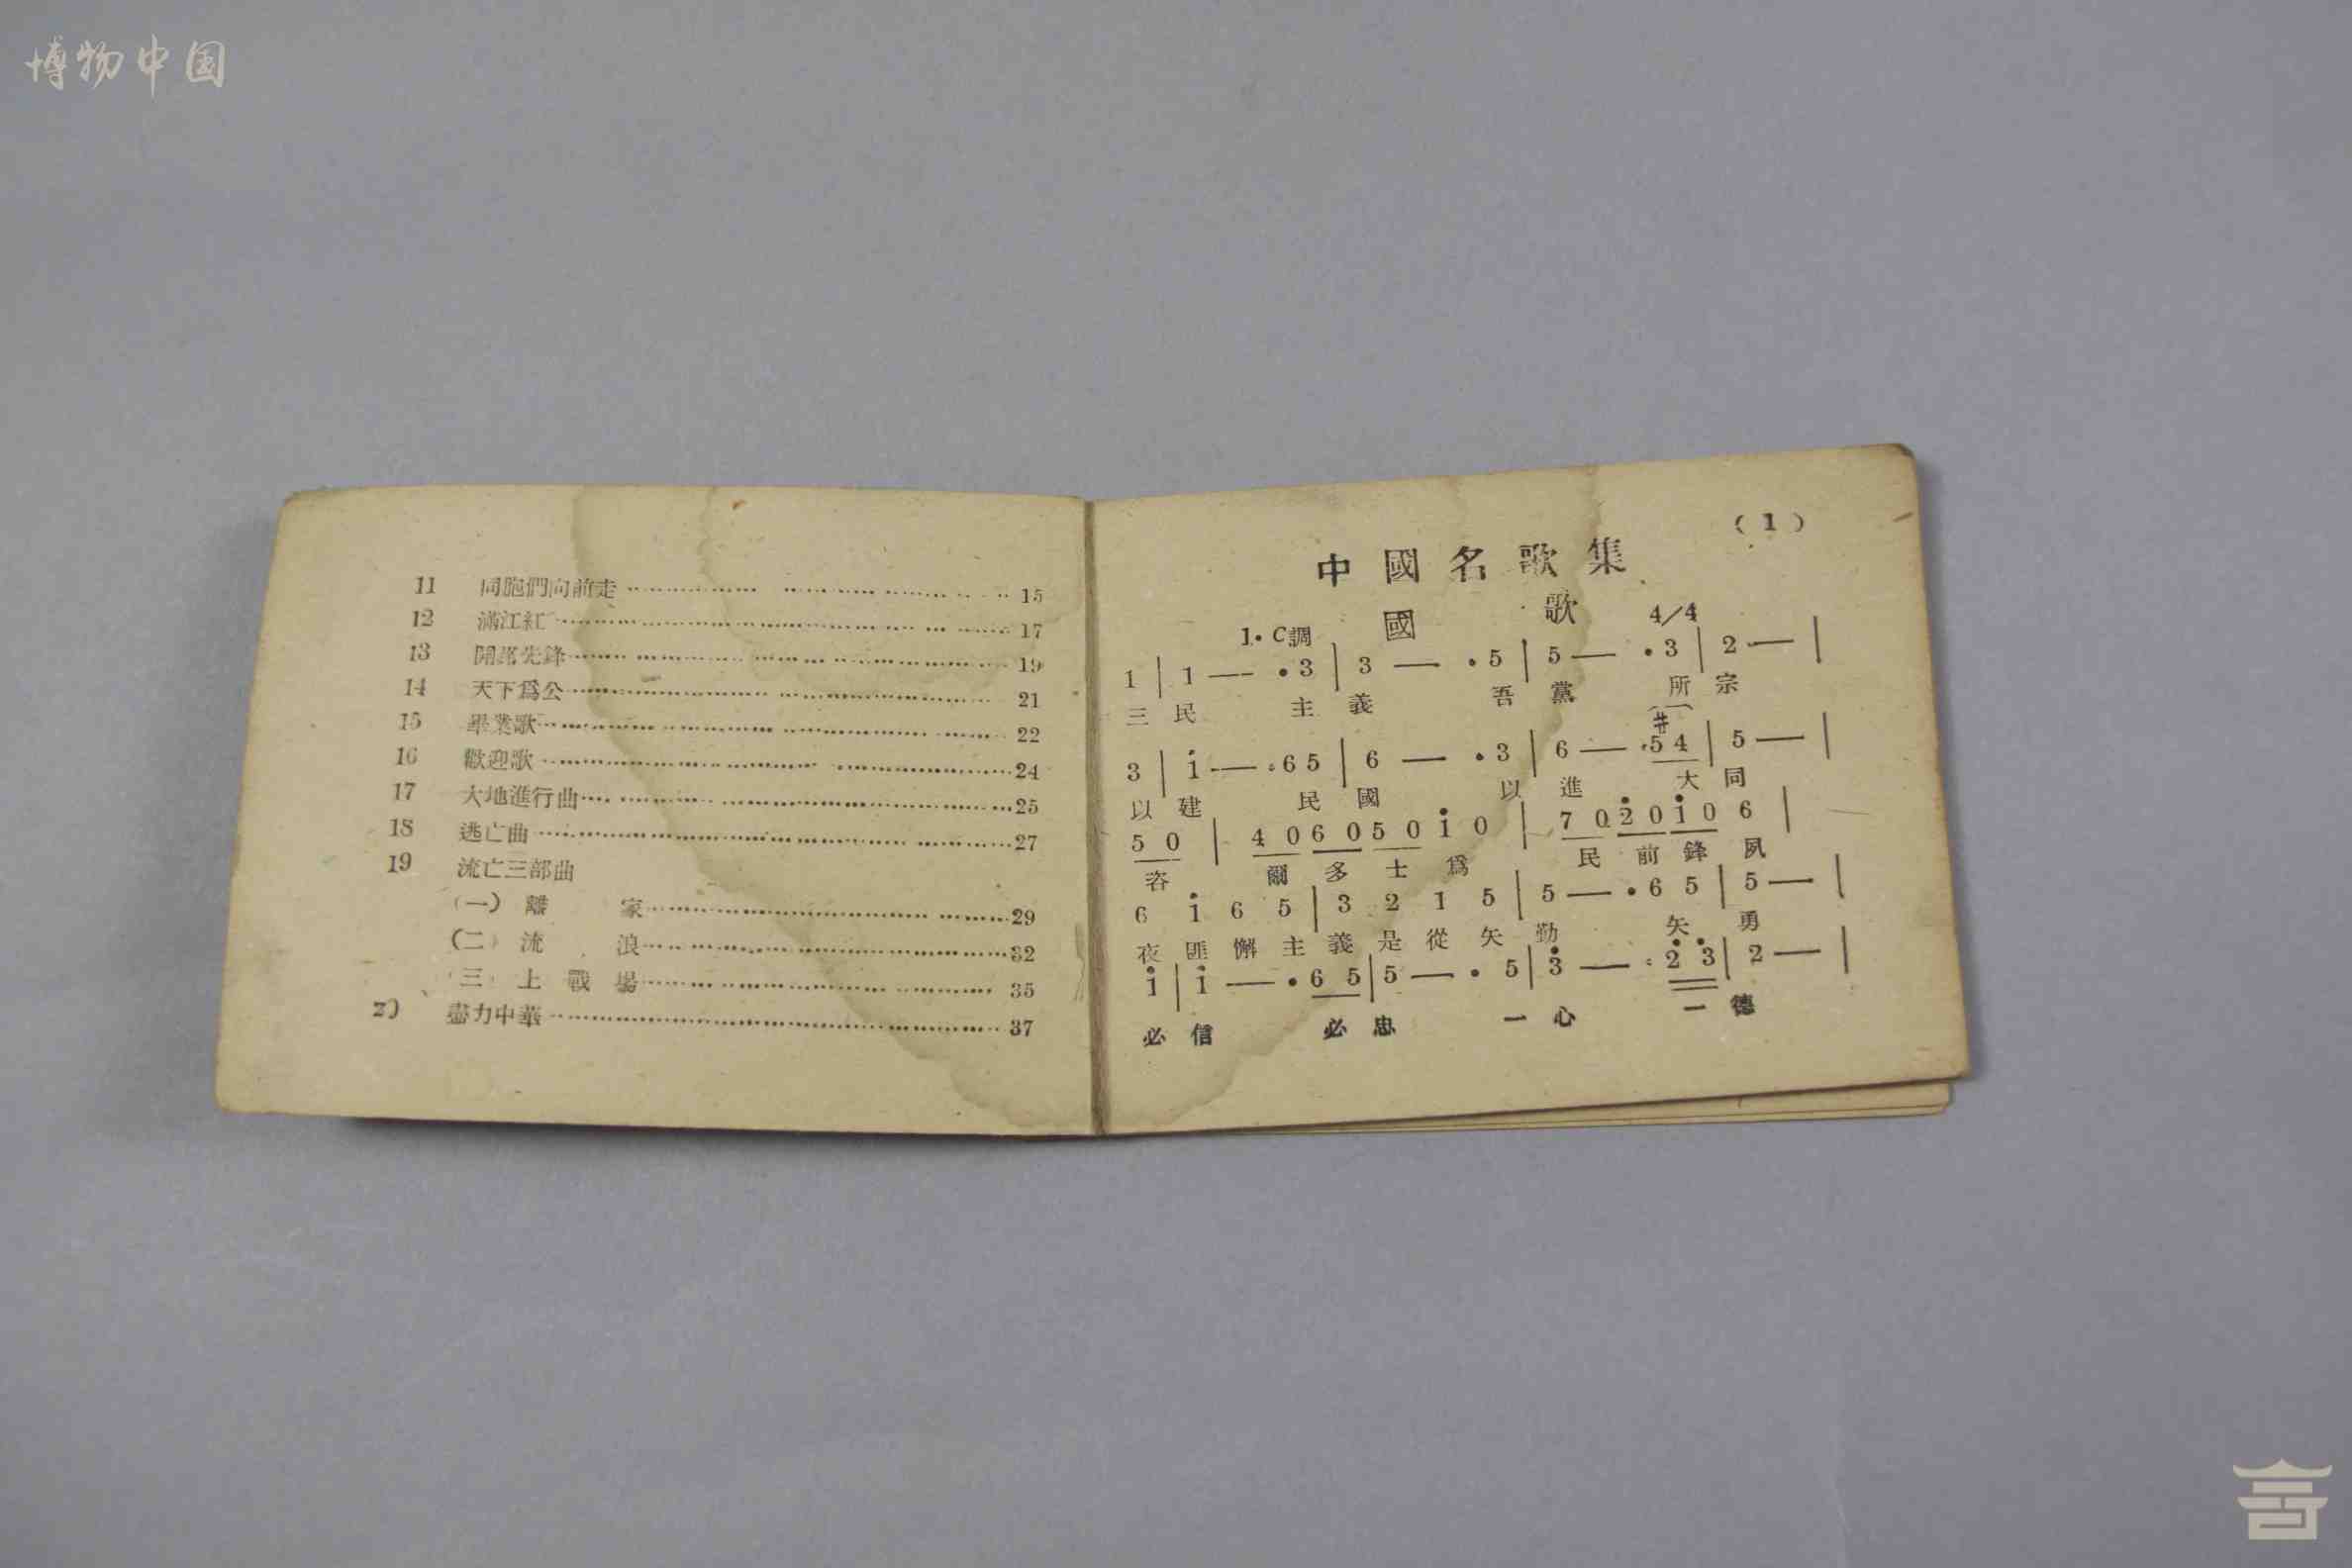 博物中国
11 同胞們向前走 15
12 滿江紅 17
13 開路先鋒 19
14 天下爲公 21
15 畢業歌 22
16 歡迎歌 24
17 大地進行曲 25
18 逃亡曲 27
19 流亡三部曲
(一) 離 家 29
(二) 流 浪 32
(三) 上 戰 場 35
20 盡力中華 37
(1)
中國名歌集
1. C調 國 歌 4/4
1 | 1 — ·3 | 3 — ·5 | 5 — ·3 | 2 — |
三 民 主 義 吾 黨 所 宗
3 | i — ·6 5 | 6 — ·3 | 6 — ·#5 4 | 5 — |
以 建 民 國 以 進 大 同
5 0 | 4 0 6 0 5 0 i 0 | 7 0 2̇ 0 i 0 6 |
咨 爾 多 士 爲 民 前 鋒 夙
6 i 6 5 | 3 2 1 5 | 5 — ·6 5 | 5 — |
夜 匪 懈 主 義 是 從 矢 勤 矢 勇
i | i — ·6 5 | 5 — · 5 | 3̇ — ·2̇ 3̇ | 2 — |
必 信 必 忠 一 心 一 德